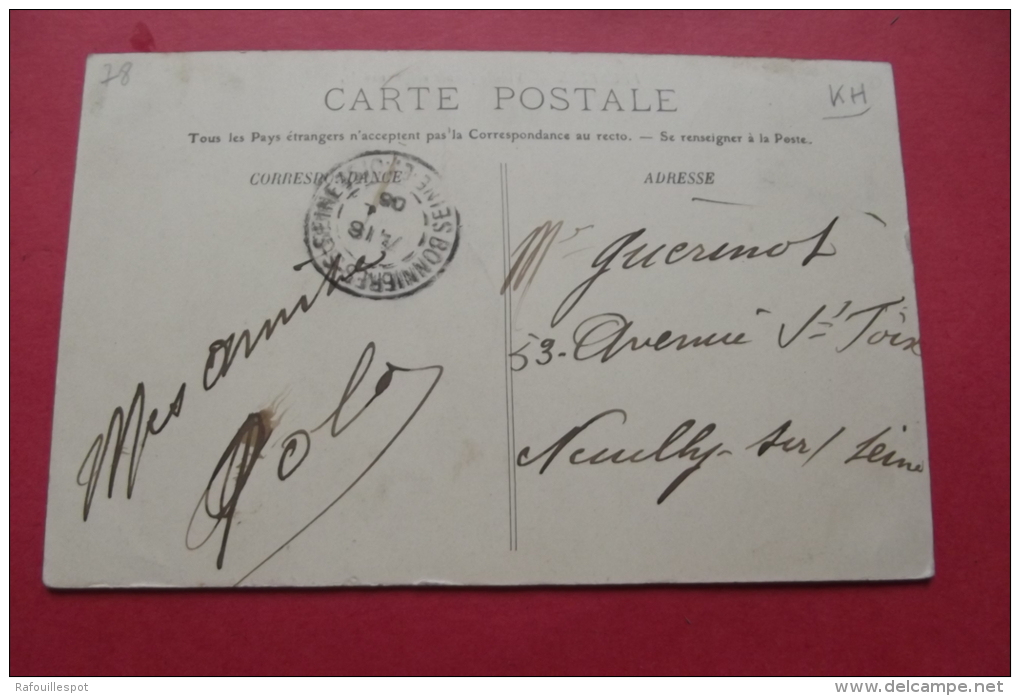 78
KH
CARTE POSTALE
Tous les Pays étrangers n'acceptent pas la Correspondance au recto. — Se renseigner à la Poste.
CORRESPONDANCE
ADRESSE
BONNIÈRES-S-SEINE
Mes amitiés
Polo
Mr Guerinot
53 - Avenue St Foix
Neuilly-sur/Seine
Rafouillespot
www.delcampe.net